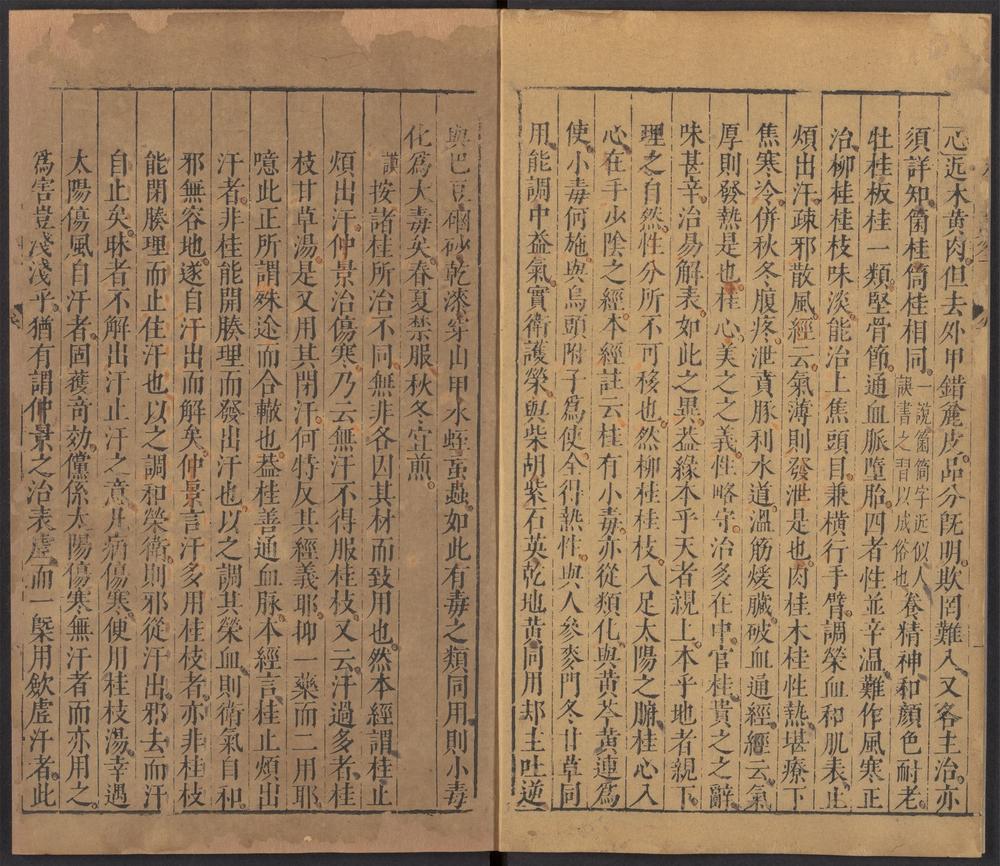 心近木黃肉但去外甲錯麄皮品分旣明欺罔難入又各主治亦
須詳知箘桂筒桂相同一說箘筒字近似人誤書之習以成俗也養精神和顏色耐老
牡桂板桂一類堅骨節通血脈墮胎四者性並辛温難作風寒正
治柳桂桂枝味淡能治上焦頭目兼橫行手臂調榮血和肌表止
煩出汗疎邪散風經云氣薄則發泄是也肉桂木桂性熱堪療下
焦寒冷併秋冬腹疼泄賁豚利水道溫筋煖臟破血通經經云氣
厚則發熱是也桂心美之之義性略守治多在中官桂貴之之辭
味甚辛治易解表如此之異葢緣本乎天者親上本乎地者親下
理之自然性分所不可移也然柳桂桂枝入足太陽之腑桂心入
心在手少陰之經本經註云桂有小毒亦從類化與黃芩黃連爲
使小毒何施與烏頭附子爲使全得熱性與人參麥門冬甘草同
用能調中益氣實衛護榮與柴胡紫石英乾地黃同用却主吐逆
與巴豆硇砂乾漆穿山甲水蛭䖟蟲如此有毒之類同用則小毒
化爲大毒矣春夏禁服秋冬宜煎
謹按諸桂所治不同無非各因其材而致用也然本經謂桂止
煩出汗仲景治傷寒乃云無汗不得服桂枝又云汗過多者桂
枝甘草湯是又用其閉汗何特反其經義耶抑一藥而二用耶
噫此正所謂殊途而合轍也葢桂善通血脉本經言桂止煩出
汗者非桂能開腠理而發出汗也以之調其榮血則衛氣自和
邪無容地遂自汗出而解矣仲景言汗多用桂枝者亦非桂枝
能閉腠理而止住汗也以之調和榮衛則邪從汗出邪去而汗
自止矣昧者不解出汗止汗之意凡病傷寒便用桂枝湯幸遇
太陽傷風自汗者固獲奇効儻係太陽傷寒無汗者而亦用之
爲害豈淺淺乎猶有謂仲景之治表虛而一槩用歛虛汗者此